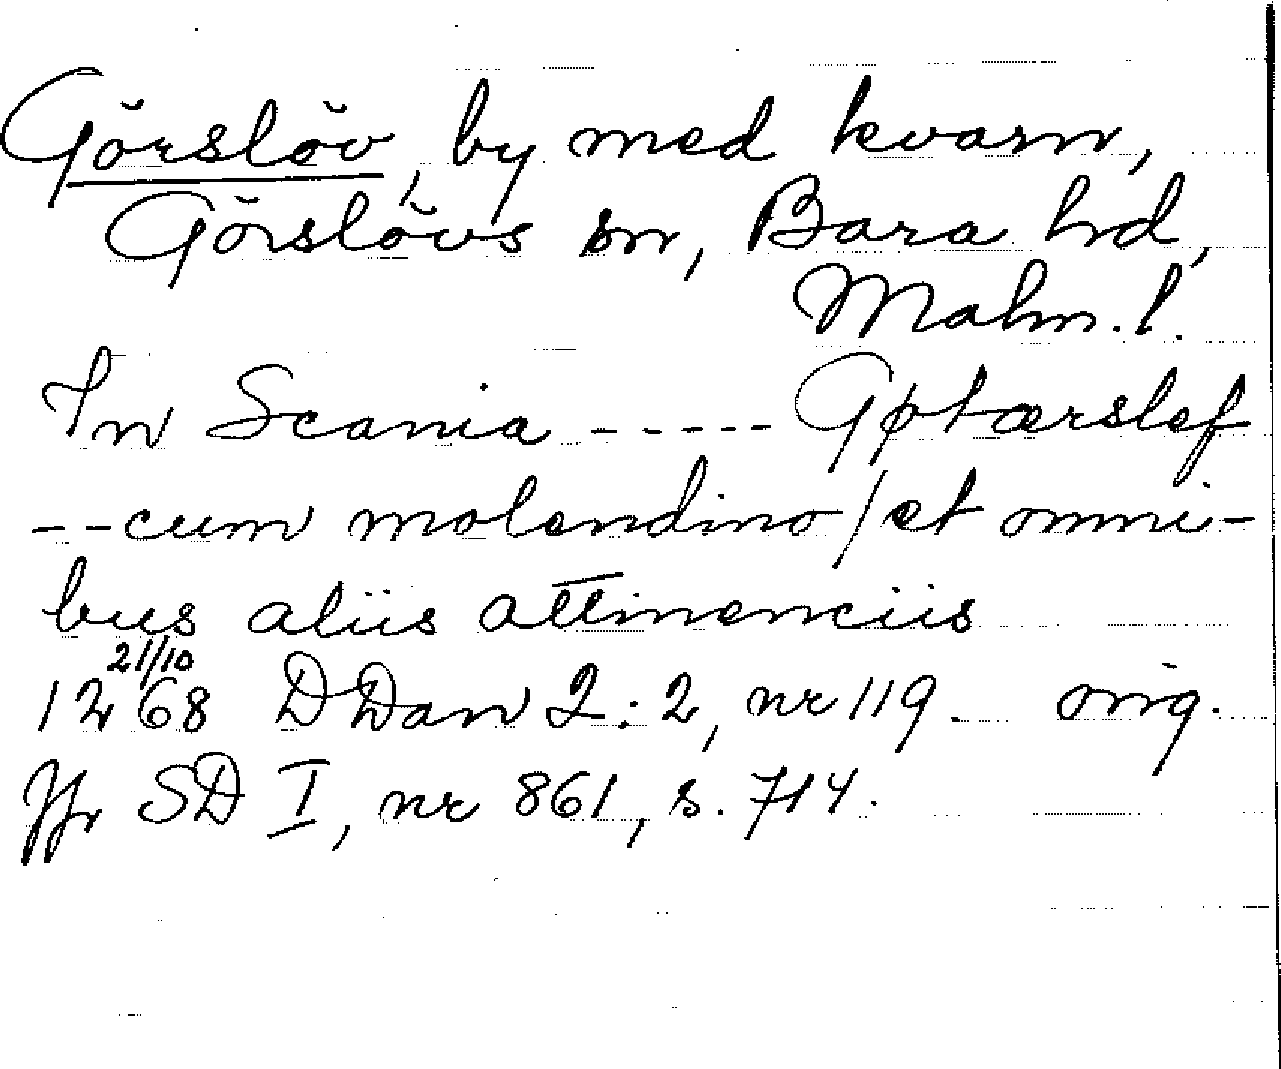 Görslöv, by med kvarn,
Görslövs sn, Bara hd,
Malm.l.
In Scania ----- Gøtærslef
-- cum molendino / et omni-
bus aliis attinenciis
21/10
1268 DDan 2:2, nr 119 orig.
Jfr SD I, nr 861, s. 714.